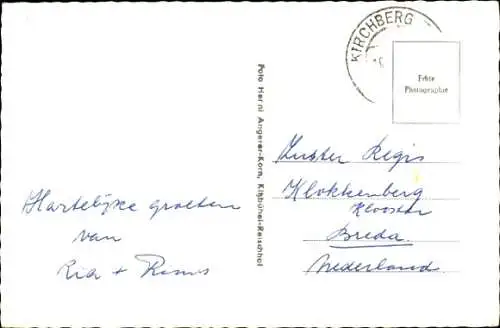 KIRCHBERG
Echte
Photographie
Foto Herni Angerer-Korn, Kitzbühel-Reischhof
Hartelijke groeten
van
Ria + Rinus
Zuster Regis
Klokkenberg
Klooster
Breda.
Nederland